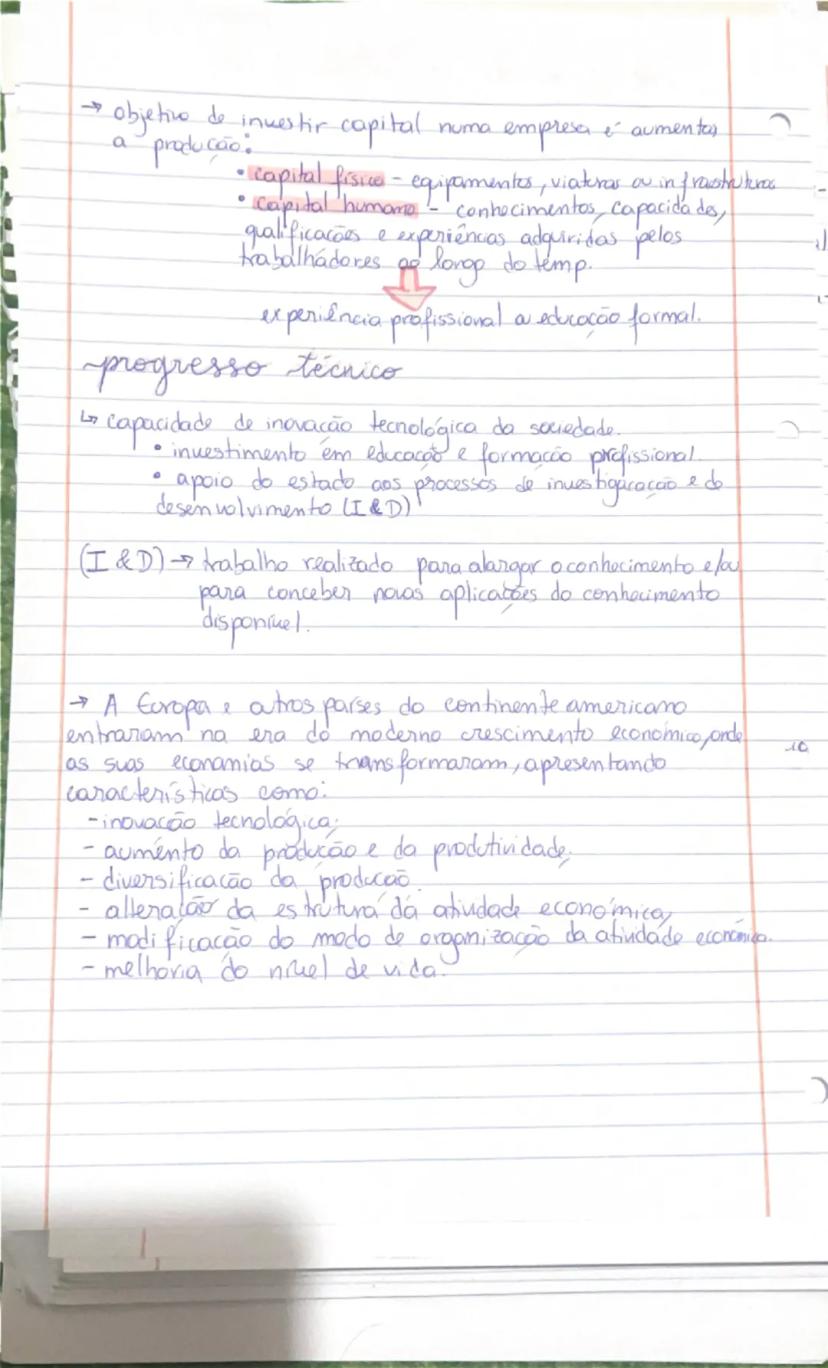 → objetivo de investir capital numa empresa é aumentar
a produção:
• capital físico - equipamentos, viaturas ou infraestruturas
• capital humano - conhecimentos, capacidades,
qualificações e experiências adquiridas pelos
trabalhadores ao longo do temp.
experiência profissional a educação formal.
progresso técnico
↳ capacidade de inovação tecnológica da sociedade.
• investimento em educação e formação profissional.
• apoio do estado aos processos de investigacação e do
desenvolvimento (I & D)
(I & D) → trabalho realizado para alargar o conhecimento e/ou
para conceber novas aplicações do conhecimento
disponível.
→ A Europa e outros países do continente americano
entraram na era do moderno crescimento económico, onde
as suas economias se transformaram, apresentando
características como:
- inovação tecnológica;
- aumento da produção e da produtividade;
- diversificação da produção
- alteração da estrutura da atividade económica,
- modificação do modo de organização da atividade económica.
- melhoria do nível de vida.